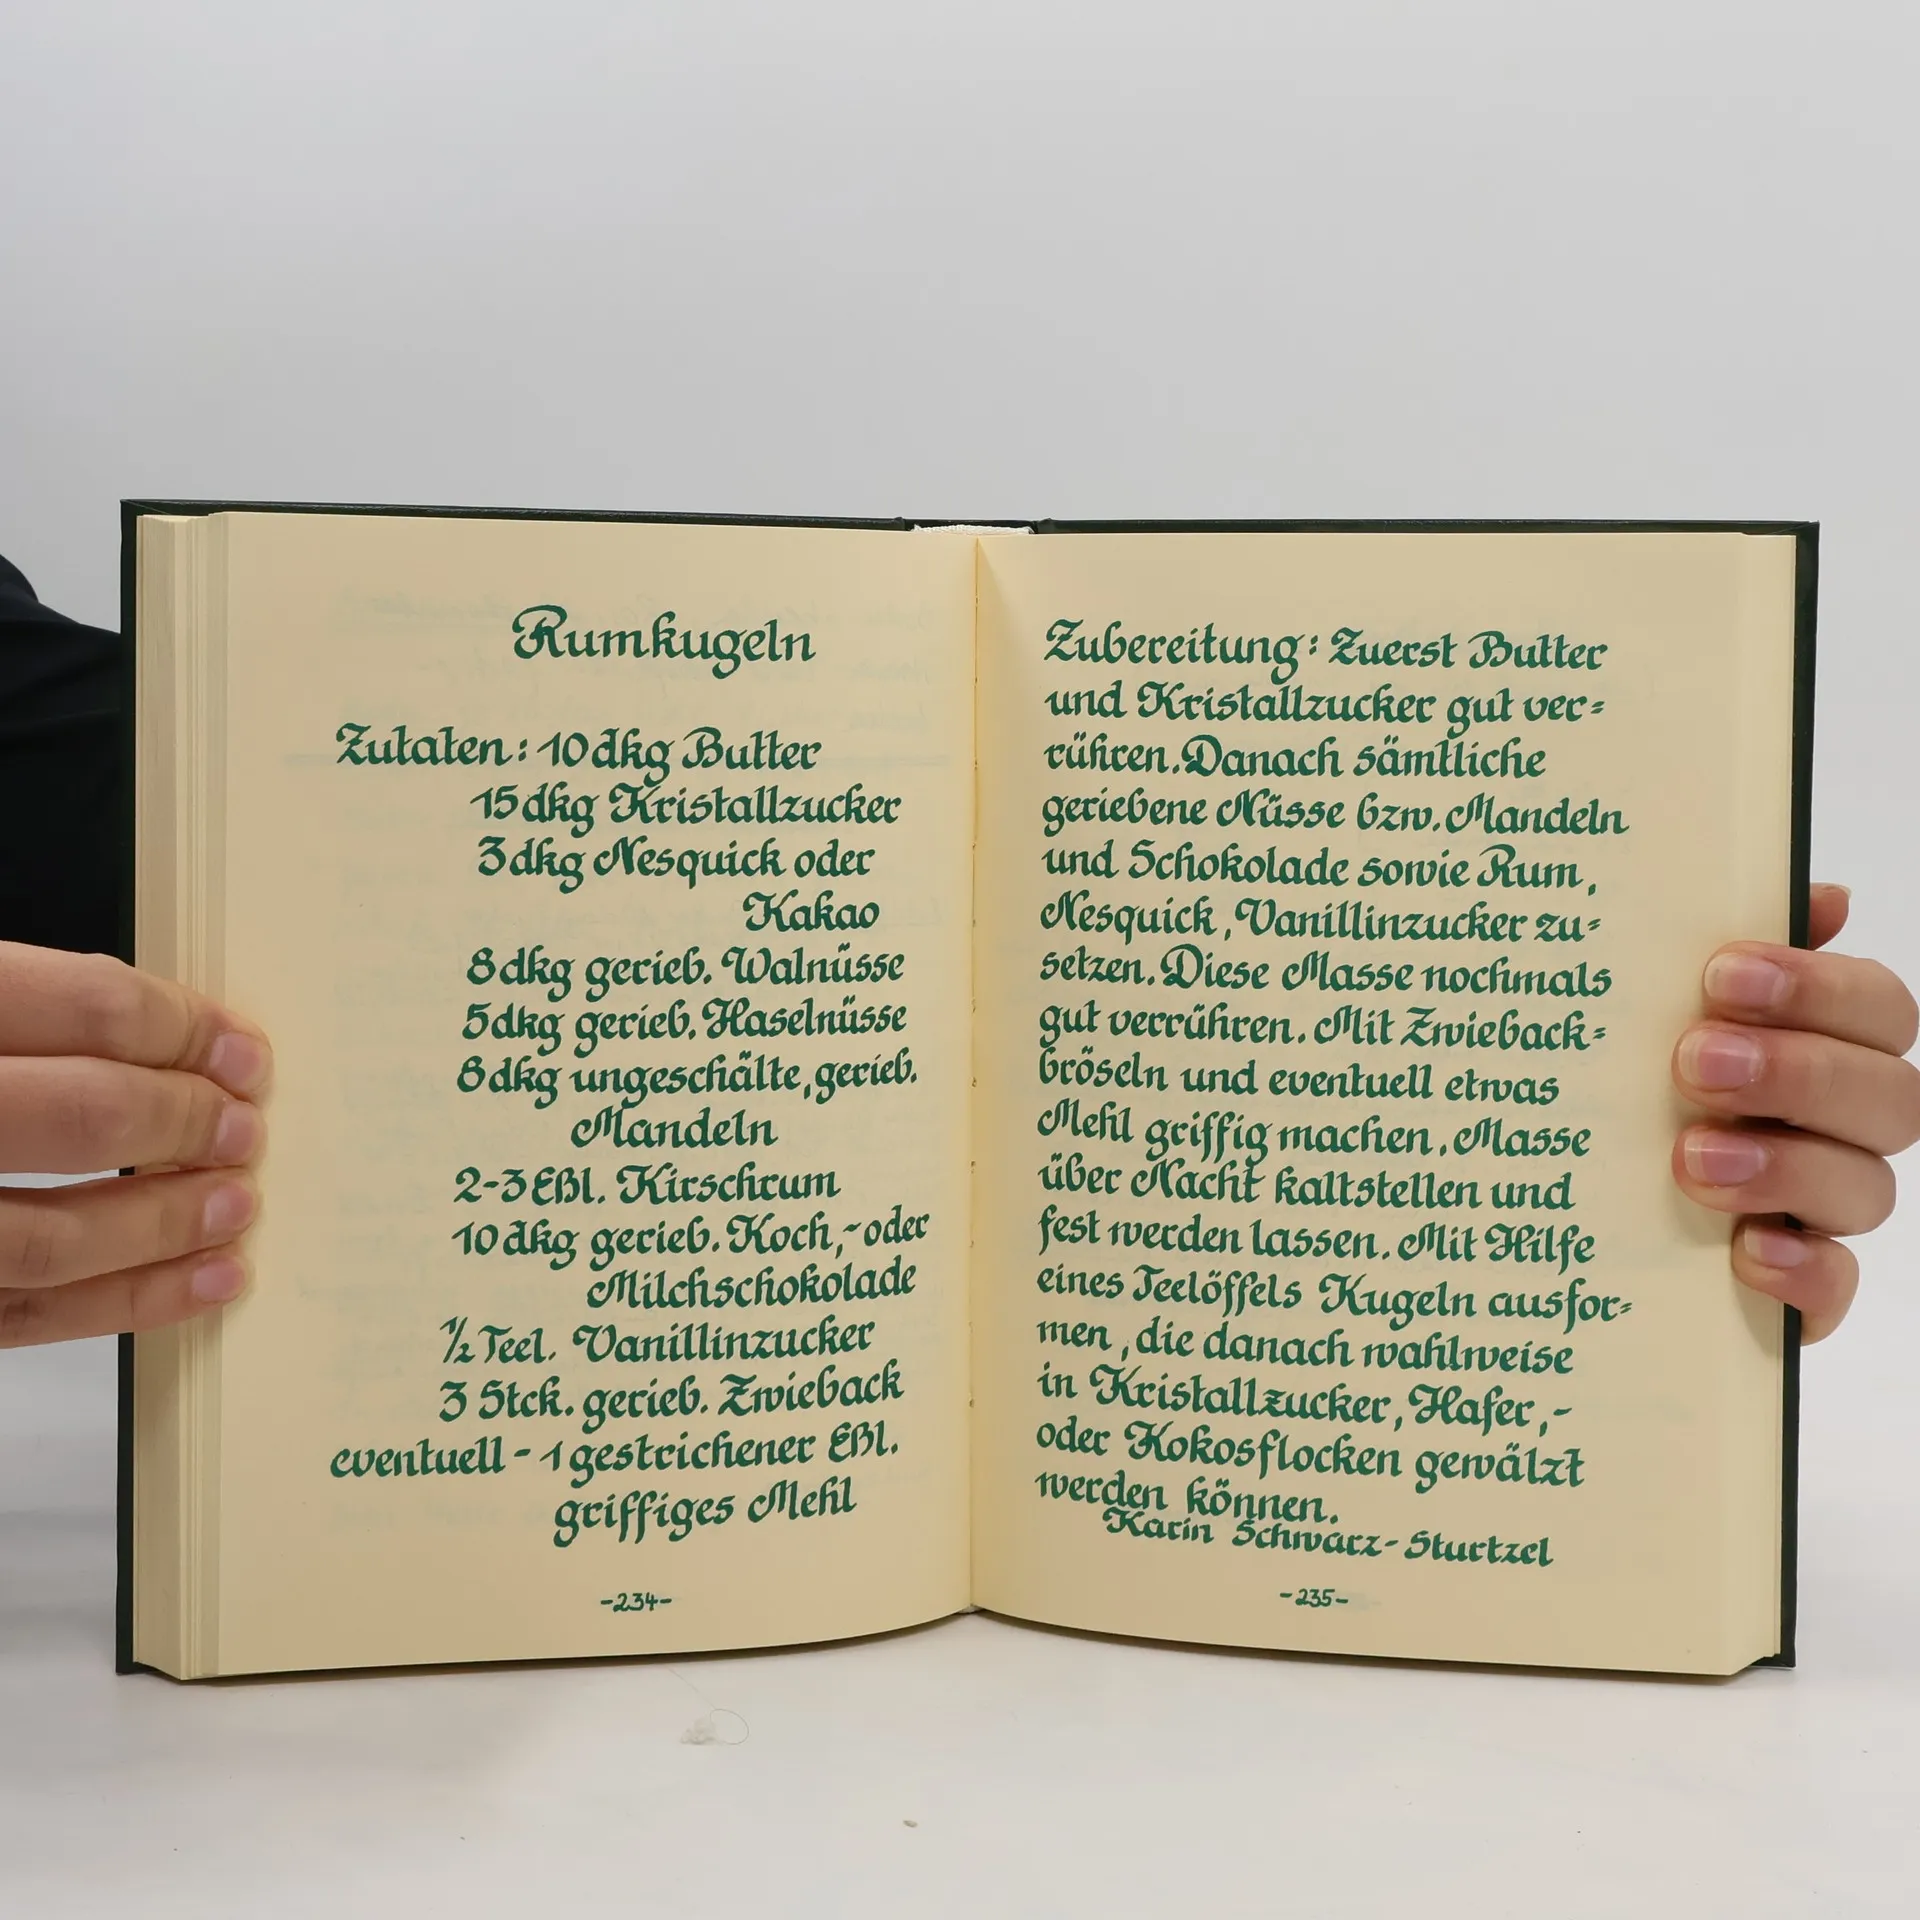 Rumkugeln
Zutaten: 10 dkg Butter
15 dkg Kristallzucker
3 dkg Nesquick oder
Kakao
8 dkg gerieb. Walnüsse
5 dkg gerieb. Haselnüsse
8 dkg ungeschälte, gerieb.
Mandeln
2-3 Eßl. Kirschrum
10 dkg gerieb. Koch,- oder
Milchschokolade
1/2 Teel. Vanillinzucker
3 Stck. gerieb. Zwieback
eventuell - 1 gestrichener Eßl.
griffiges Mehl
-234-
Zubereitung: Zuerst Butter
und Kristallzucker gut ver=
rühren. Danach sämtliche
geriebene Nüsse bzw. Mandeln
und Schokolade sowie Rum,
Nesquick, Vanillinzucker zu=
setzen. Diese Masse nochmals
gut verrühren. Mit Zwieback=
bröseln und eventuell etwas
Mehl griffig machen. Masse
über Nacht kaltstellen und
fest werden lassen. Mit Hilfe
eines Teelöffels Kugeln ausfor=
men, die danach wahlweise
in Kristallzucker, Hafer,-
oder Kokosflocken gewälzt
werden können.
Karin Schwarz-Sturtzel
-235-